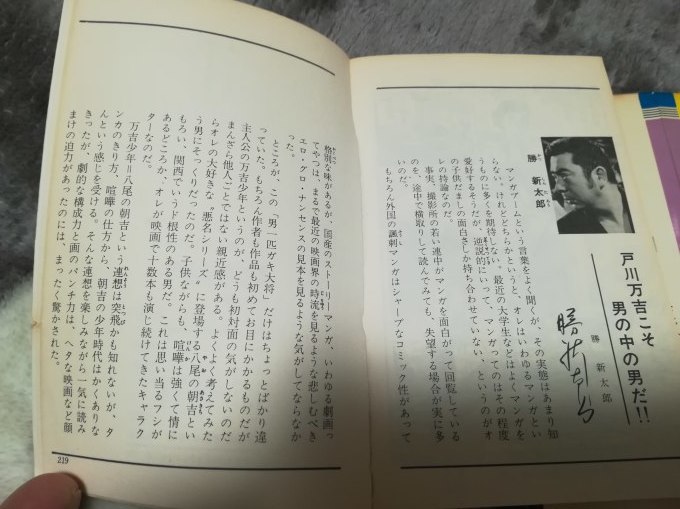 戸川万吉こそ
男の中の男だ!!
勝 新太郎
勝新太郎
かつ しんたろう
勝 新太郎
マンガブームという言葉をよく聞くが、その実態はあまり知
らない。けれどどちらかというと、オレはいわゆるマンガとい
うものに多くを期待しない。最近の大学生などはよくマンガを
愛好するそうだが、逆説的にいって、マンガってのはその程度
の子供だましの面白さしか持ち合わせていない、というのがオ
レの持論なのだ。
事実、撮影所の若い連中がマンガを面白がって回覧している
のを、途中で横取りして読んでみても、失望する場合が実に多
いのだ。
もちろん外国の諷刺マンガはシャープなコミック性があって
格別な味があるが、国産のストーリーマンガ、いわゆる劇画っ
てやつは、まるで最近の映画界の時流を見るような悲しむべき
エロ・グロ・ナンセンスの見本を見るような気がしてならなか
った。
ところが、この〝男一匹ガキ大将〟だけはちょっとばかり違
っていた。もちろん作者も作品も初めてお目にかかるものだが
主人公の万吉少年というのが、どうも初対面の気がしないのだ
まんざら他人ごとではない親近感がある。よくよく考えてみた
らオレの大好きな〝悪名シリーズ〟に登場する八尾の朝吉とい
う男にそっくりだったのだ。子供ながらも、喧嘩は強くて情に
もろい、関西でいうド根性のある男だ。これは思い当るフシが
あるどころか、オレが映画で十数本も演じ続けてきたキャラク
ターなのだ。
万吉少年=八尾の朝吉という連想は突飛かも知れないが、タ
ンカのきり方、喧嘩の仕方から、朝吉の少年時代はかくありな
んという感じを受ける。そんな連想を楽しみながら一気に読み
きったが、劇的な構成力と画のパンチ力は、ヘタな映画など顔
まけの迫力があったのには、まったく驚かされた。
219